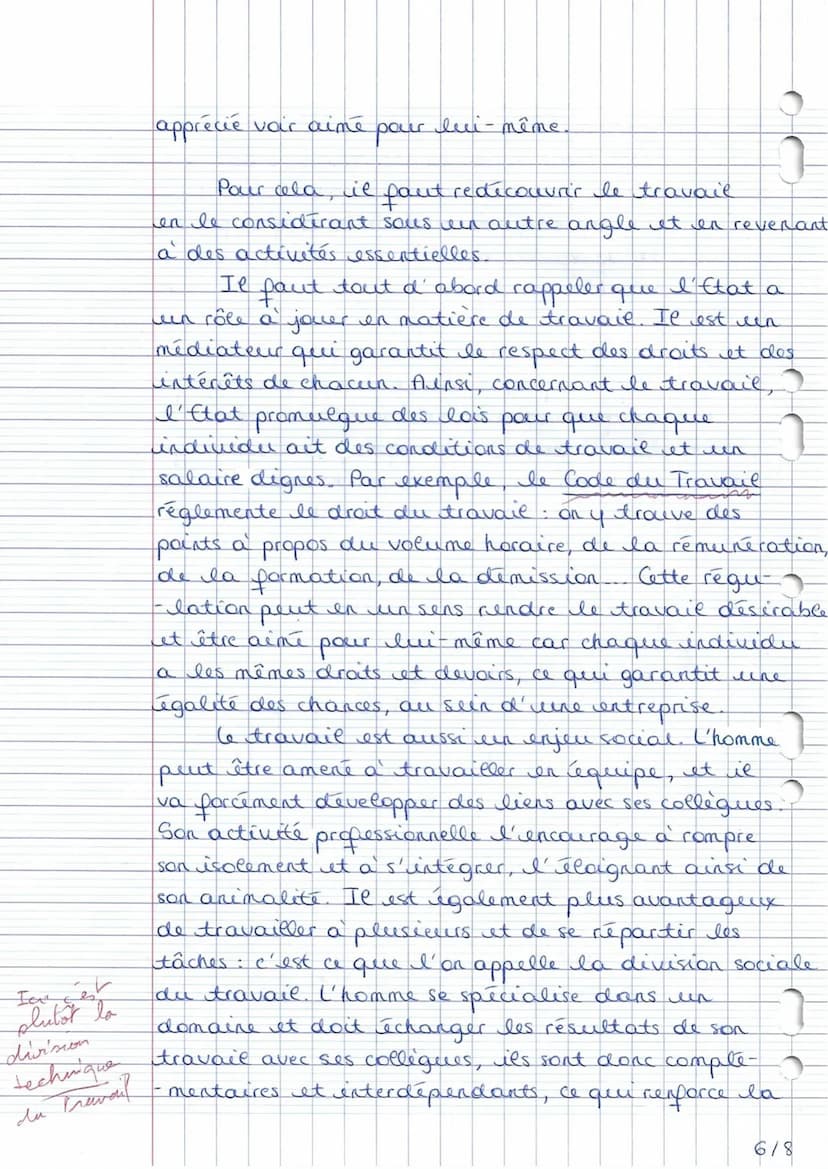 apprécié voir aimé pour lui-même.
Pour cela, il faut redécouvrir le travail
en le considérant sous un autre angle et en revenant
à des activités essentielles.
Il faut tout d'abord rappeler que l'Etat a
un rôle à jouer en matière de travail. Il est un
médiateur qui garantit le respect des droits et des
intérêts de chacun. Ainsi, concernant le travail,
l'Etat promulgue des lois pour que chaque
individu ait des conditions de travail et un
salaire dignes. Par exemple, le Code du Travail
réglemente le droit du travail : on y trouve des
points à propos du volume horaire, de la rémunération,
de la formation, de la démission... Cette régu-
-lation peut en un sens rendre le travail désirable
et être aimé pour lui-même car chaque individu
a les mêmes droits et devoirs, ce qui garantit une
égalité des chances, au sein d'une entreprise.
Le travail est aussi un enjeu social. L'homme
peut être amené à travailler en équipe, et il
va forcément développer des liens avec ses collègues.
Son activité professionnelle l'encourage à rompre
son isolement et à s'intégrer, l'éloignant ainsi de
son animalité. Il est également plus avantageux
de travailler à plusieurs et de se répartir les
tâches : c'est ce que l'on appelle la division sociale
du travail. L'homme se spécialise dans un
domaine et doit échanger les résultats de son
travail avec ses collègues, ils sont donc complé-
-mentaires et interdépendants, ce qui renforce la
Ici c'est
plutôt la
division
technique
du Travail
6/8